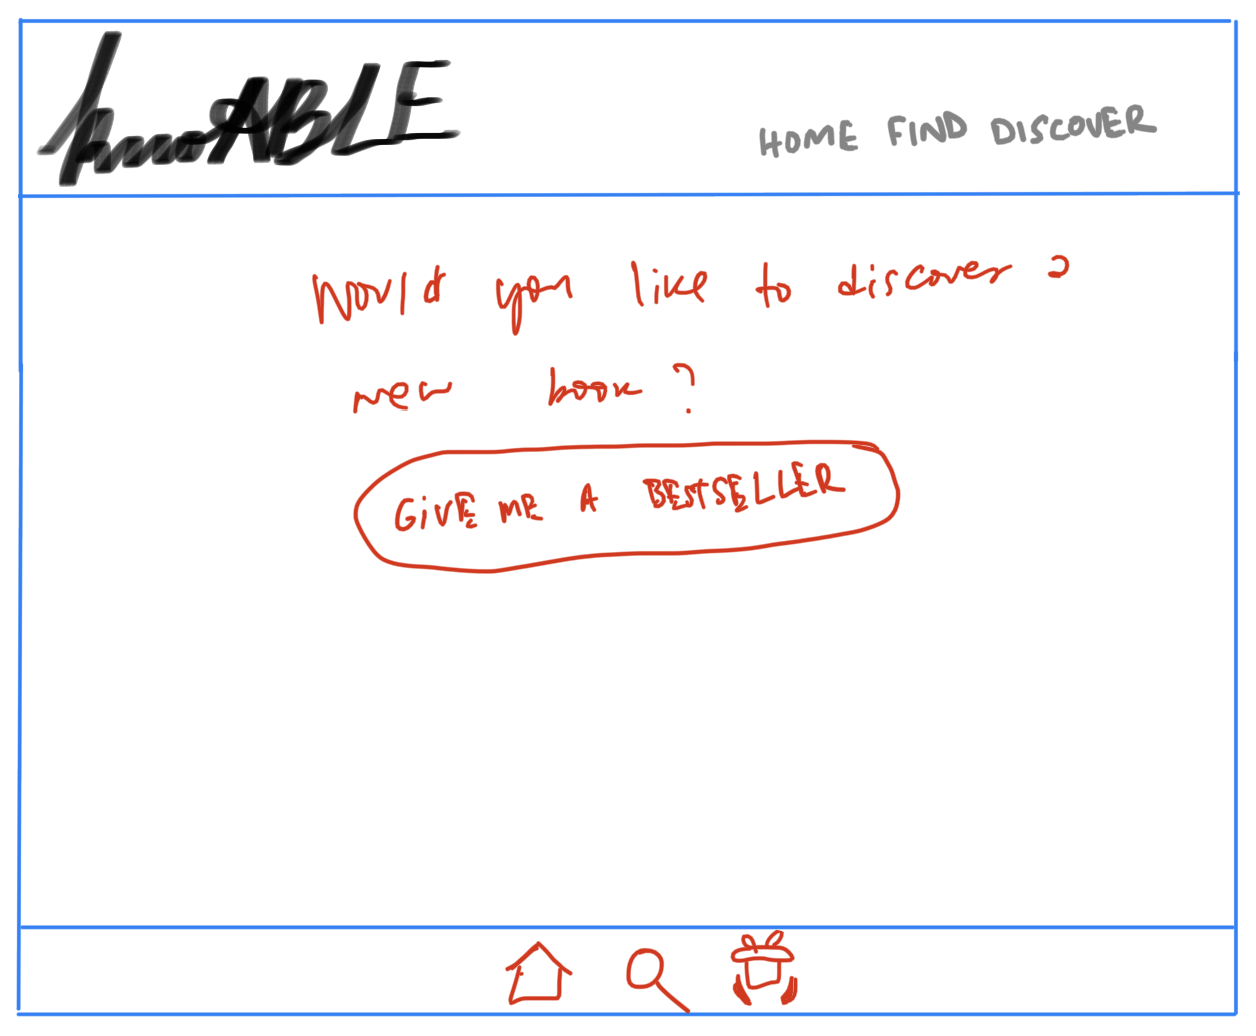 HOME FIND DISCOVER
Would you like to discover a
new book?
GIVE ME A BESTSELLER